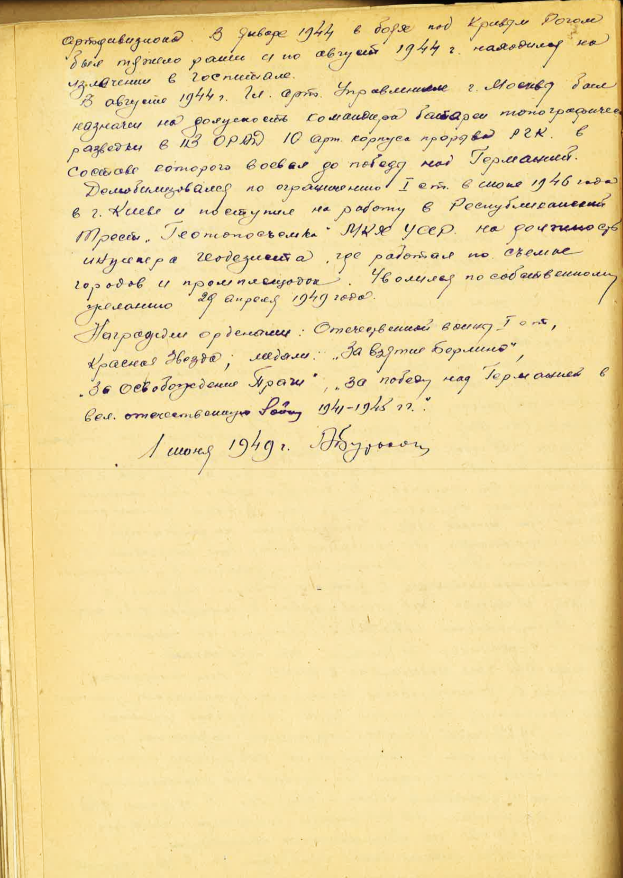 артдивизиона. В январе 1944 в боях под Кривым Рогом
был тяжело ранен и по август 1944 г. находился на
излечении в госпитале.
В августе 1944 г. Гл. арт. Управлением г. Москвы был
назначен на должность командира батареи топографическ
разведки в 113 ОРАД 10 арт. корпуса прорыва РГК. в
составе которого воевал до победы над Германией.
Демобилизовался по ограничению I ст. в июне 1946 года
в г. Киеве и поступил на работу в Республиканский
Трест „Геотопосъемка" МКХ УССР. на должность
инженера геодезиста, где работал по съемке
городов и промплощадок. Уволился по собственному
желанию 29 апреля 1949 года.
Награжден орденами: Отечественной войны I ст,
Красная Звезда; медали: „За взятие Берлина",
„За Освобождение Праги", „За победу над Германией в
вел. отечественную войну 1941-1945 гг."
1 июня 1949 г.